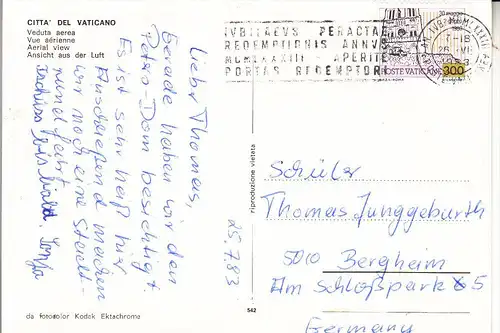 CITTA' DEL VATICANO
Veduta aerea
Vue aérienne
Aerial view
Ansicht aus der Luft
Lieber Thomas,
Gerade haben wir den
Peters-Dom besichtigt.
Es ist sehr heiß hier.
Anschließend machen
wir noch eine Stadt-
rundfahrt
Tschüss bis bald.
25.7.83
da fotocolor Kodak Ektachrome
542
riproduzione vietata
IVBILAEVS PERACTAE
REDEMPTIONIS ANNVS
MCMLXXXIII - APERITE
PORTAS REDEMPTORI
POSTE VATICANE
300
Schüler
Thomas Junggeburth
5010 Bergheim
Am Schloßpark 5
Germany